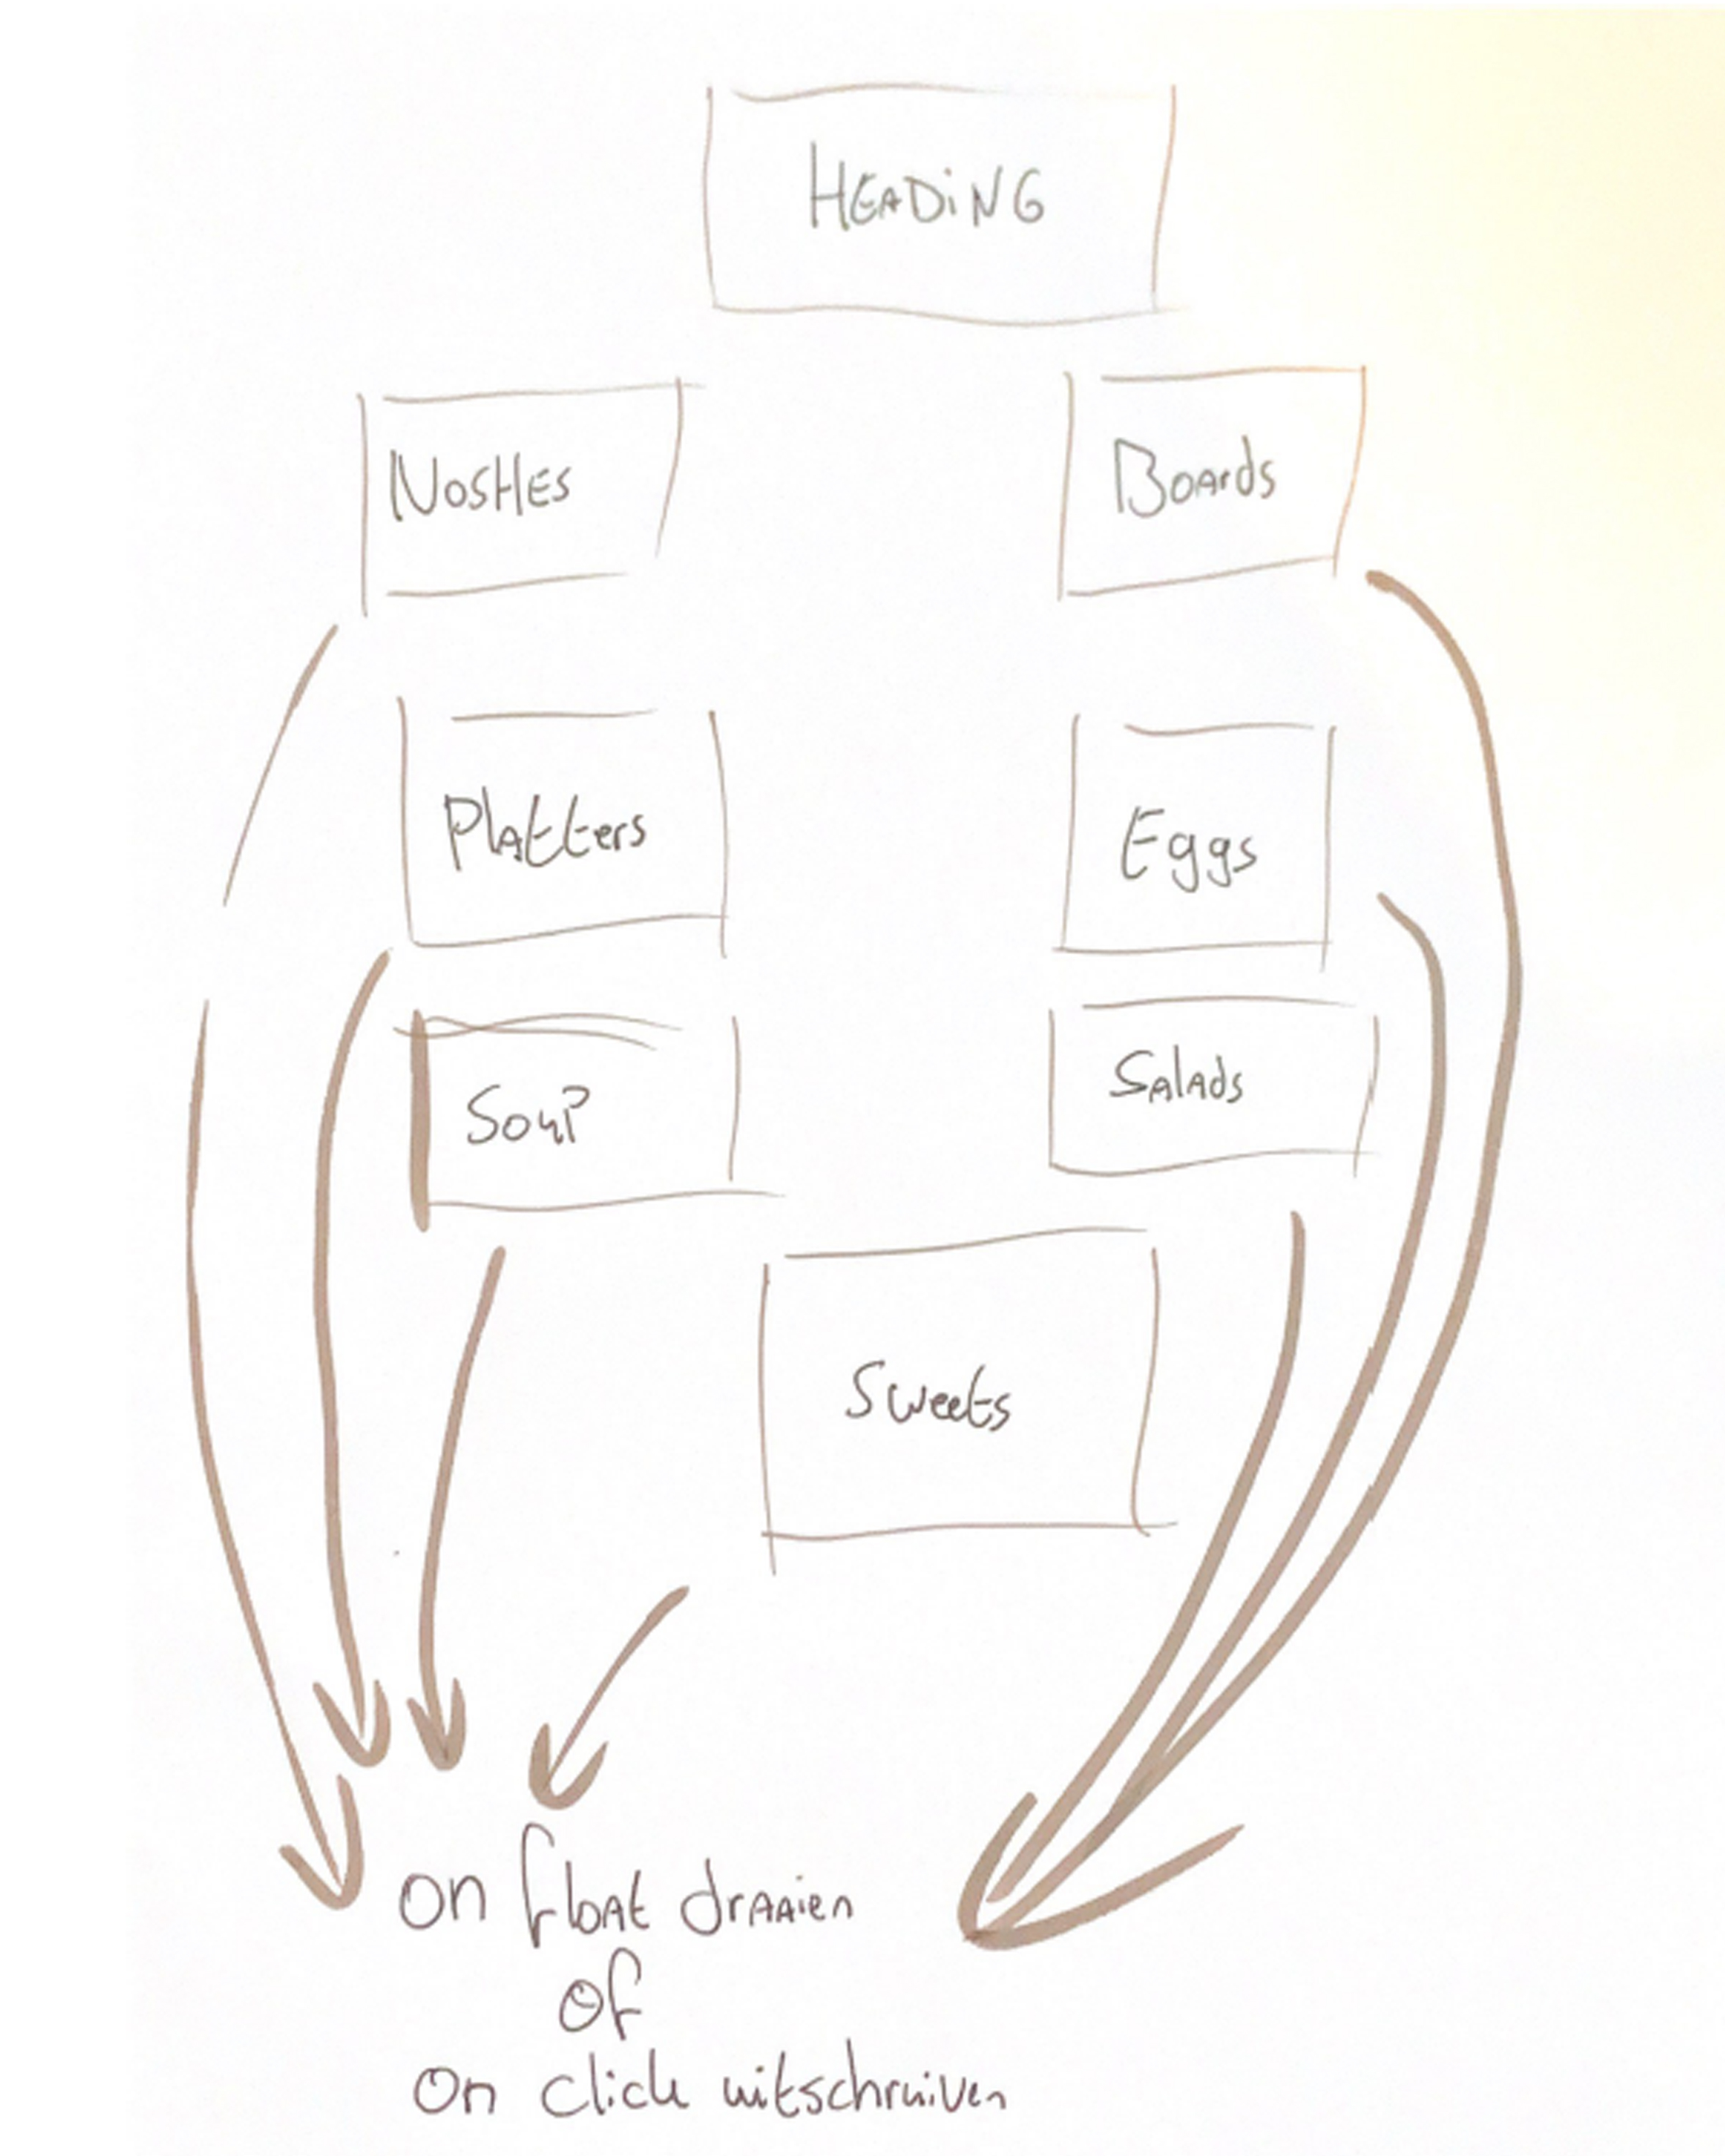 HEADiNG
NosHes
Boards
Platters
Eggs
Soup
Salads
Sweets
on float draaien
of
on click uitschruiven